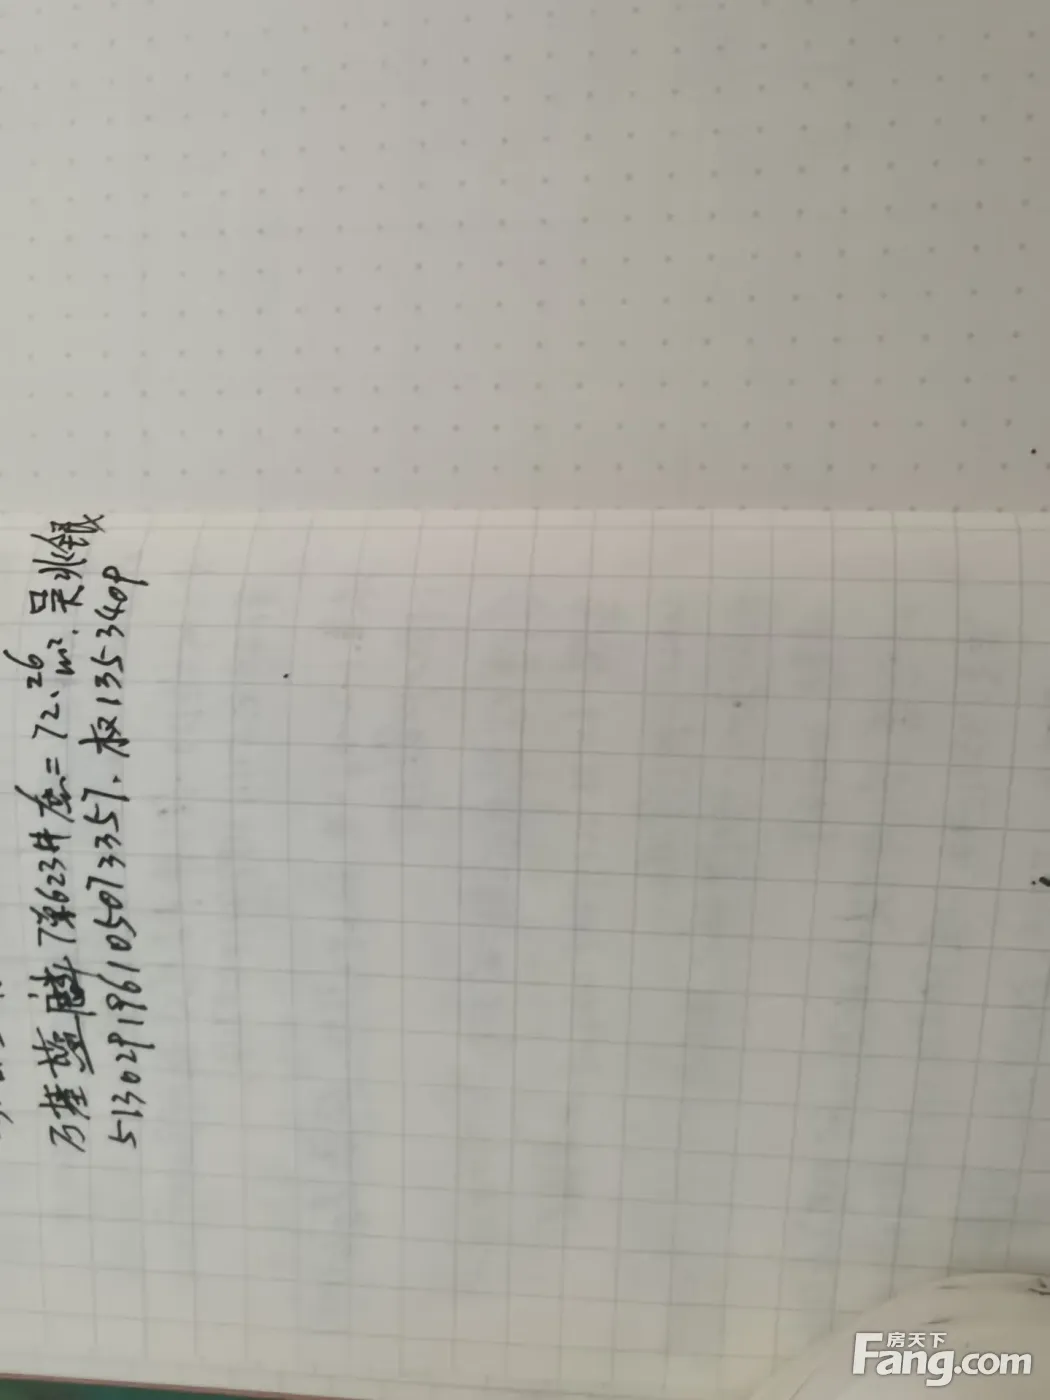 万基 麟 623# =72.26m². 吴永银
513029196105073357. 权135340P
房天下
Fang.com